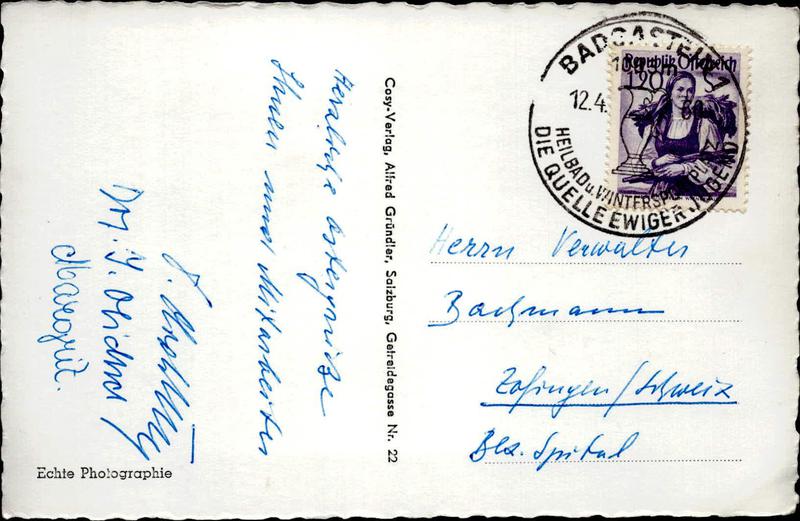 Herzliche Ostergrüsse
Ihnen und Mitarbeiter
Margrit.
Echte Photographie
Cosy-Verlag, Alfred Gründler, Salzburg, Getreidegasse Nr. 22
BADGASTEIN 1
12.4.
HEILBAD u. WINTERSPORTPLATZ
DIE QUELLE EWIGER JUGEND
Republik Österreich
120
Herrn Verwalter
Bachmann
Zofingen/Schweiz
Bez. Spital